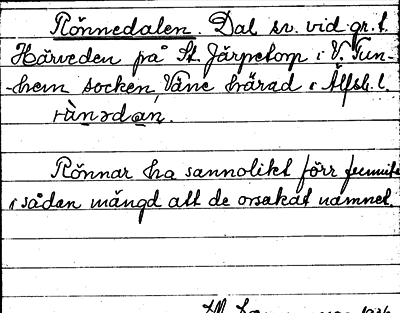 Rönnedalen. Dal sv. vid gr. t.
Härveden på St. Järpetorp i V. Tun-
-hem socken, Väne härad i Älfsb. l.
rànədan.
Rönnar ha sannolikt förr funnits
i sådan mängd att de orsakat namnet.